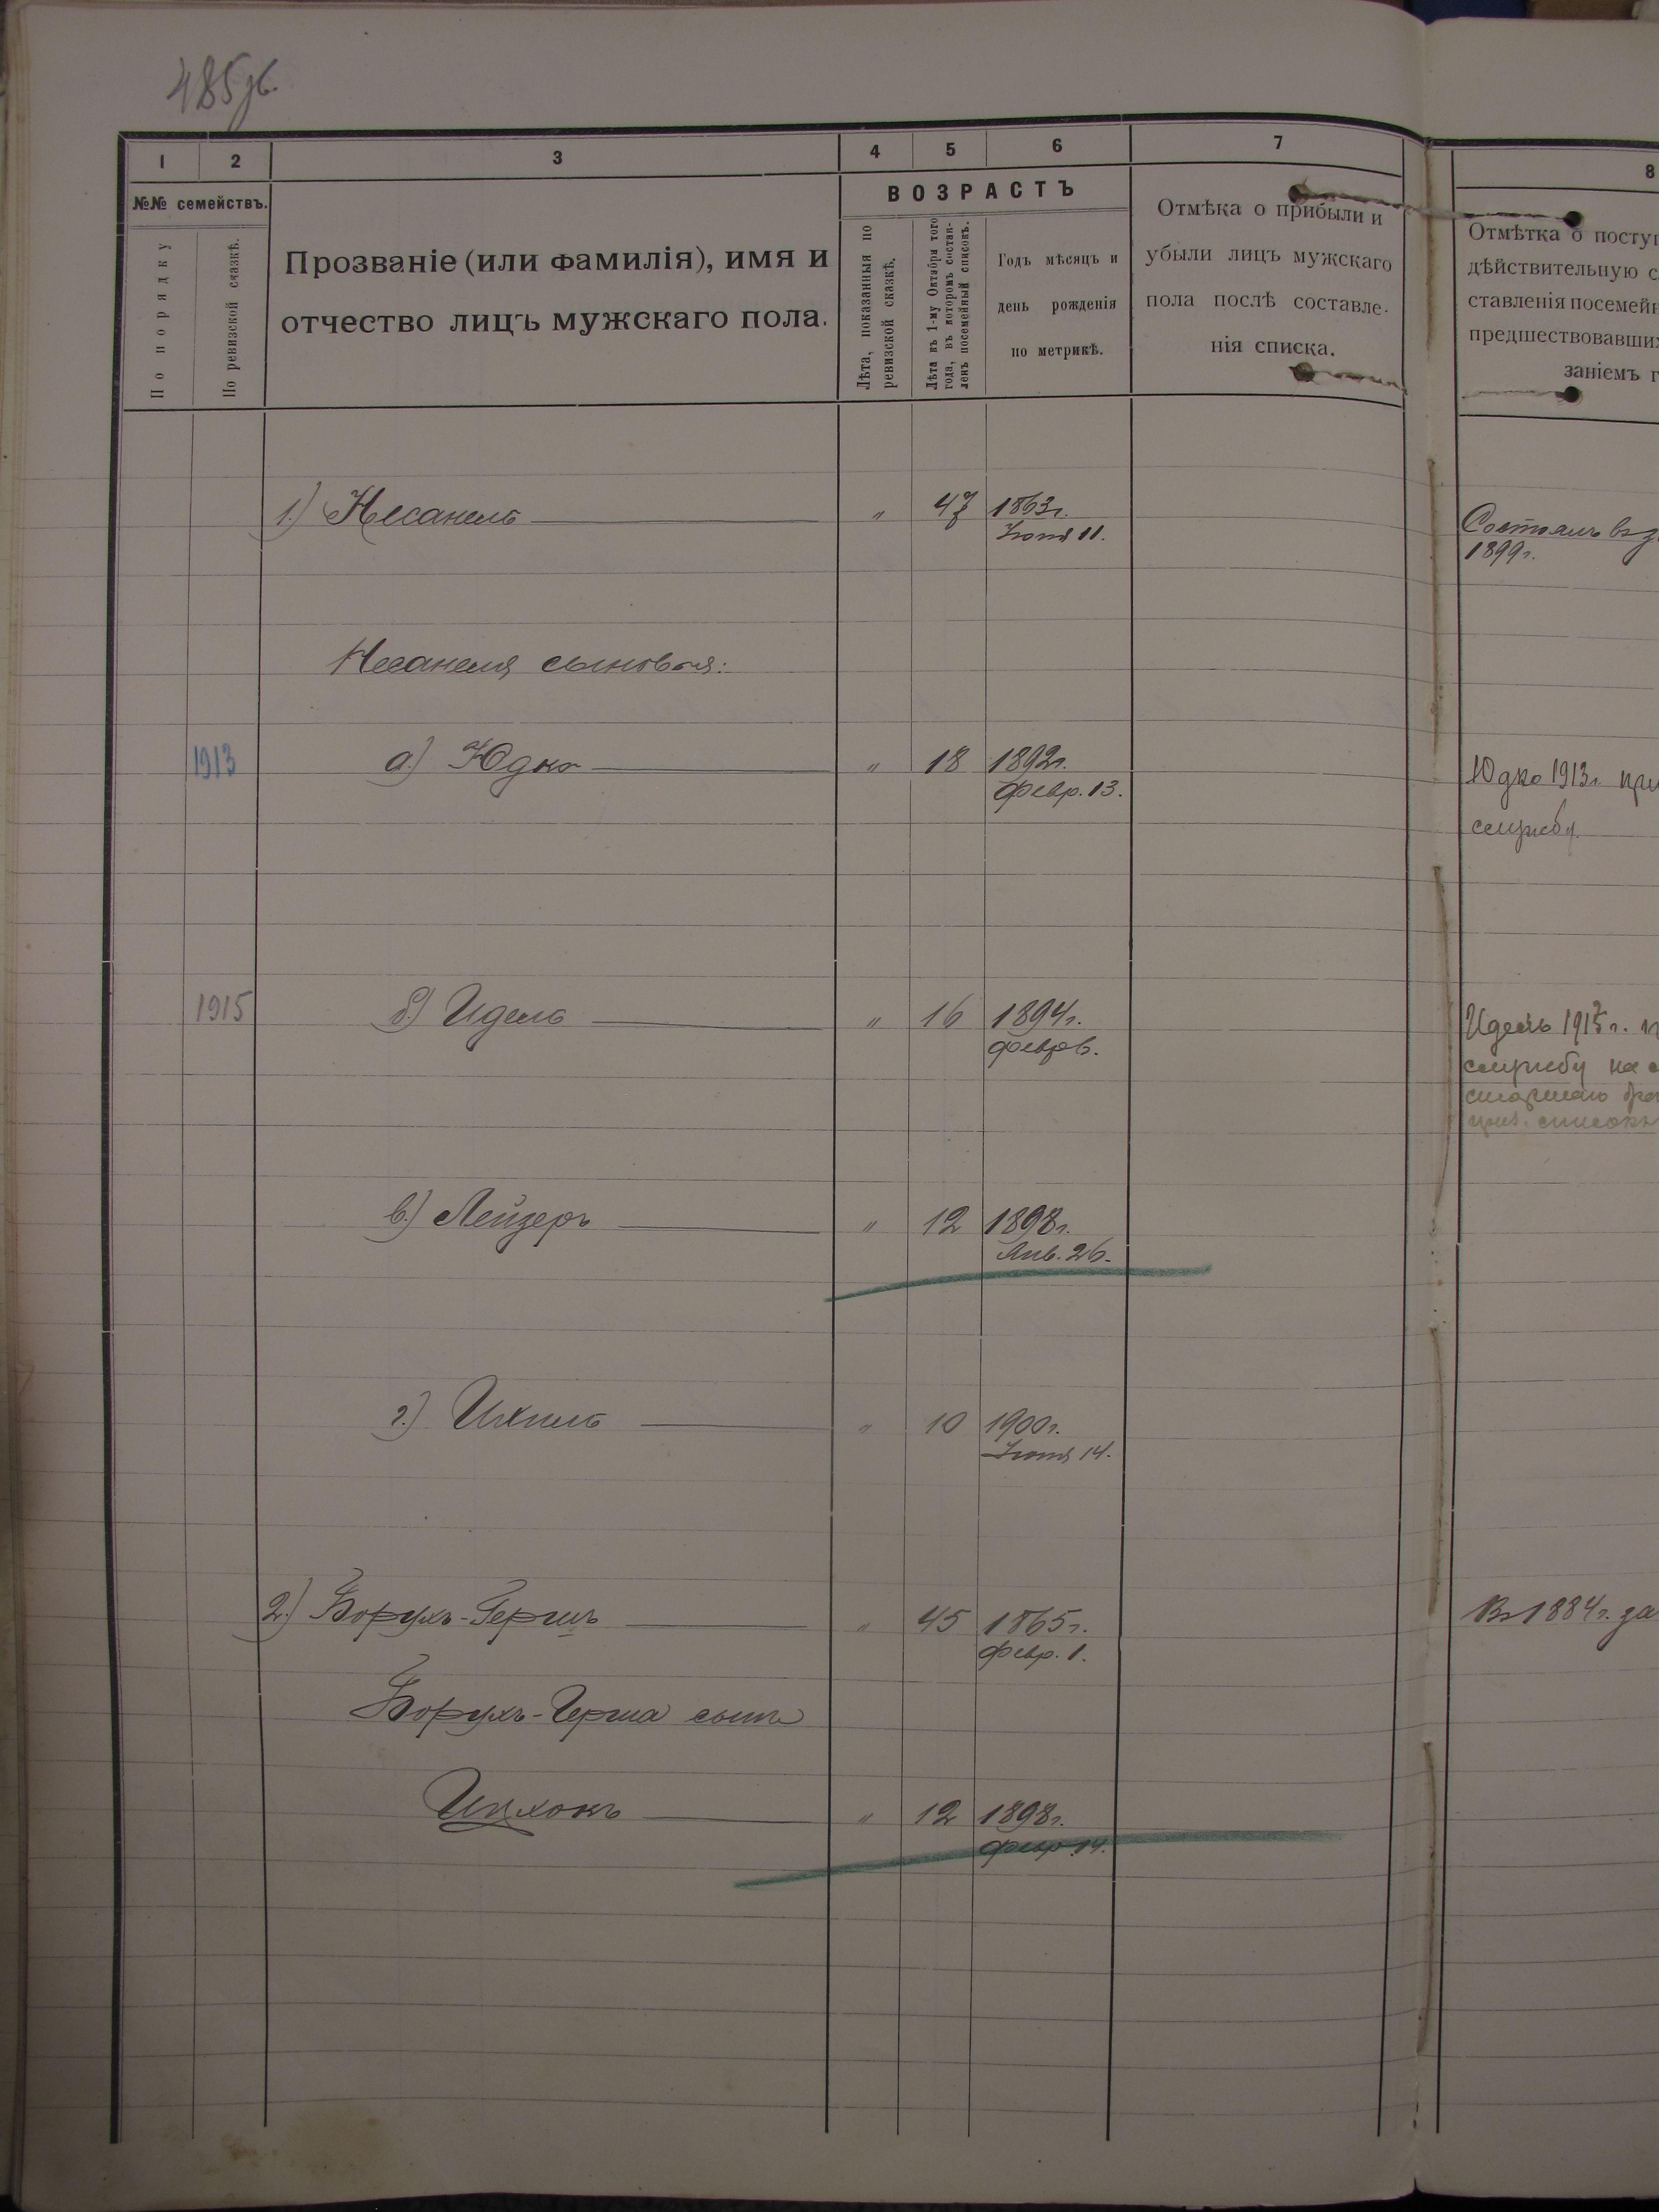 485 об.
1 2 3 4 5 6 7 8
№№ семействъ.
По порядку
По ревизской сказкѣ.
Прозваніе (или фамилія), имя и
отчество лицъ мужскаго пола.
ВОЗРАСТЪ
Лѣта, показанныя по
ревизской сказкѣ.
Лѣта къ 1-му Октября того
года, въ которомъ состав-
ленъ посемейный списокъ.
Годъ мѣсяцъ и
день рожденія
по метрикѣ.
Отмѣка о прибыли и
убыли лицъ мужскаго
пола послѣ составле-
нія списка.
Отмѣтка о посту
дѣйствительную с
ставленія посемейн
предшествовавши
заніемъ г
1.) Несанель " 47 1863г.
Іюня 11.
Состоялъ въ з
1899г.
Несанеля сыновья:
1913 а.) Юдка " 18 1892г.
Февр. 13.
Юдка 1913г. при
службу.
1915 б.) Идель " 16 1894г.
Февр. 6.
Идель 1915г.
службу на
старшаго бра
списокъ
в.) Лейзеръ " 12 1898г.
Янв. 26.
г.) Ихиль " 10 1900г.
Іюня 14.
2.) Борухъ-Гершъ " 45 1865г.
Февр. 1.
Въ 1884г. за
Борухъ-Герша сынъ
Ицхокъ " 12 1898г.
Февр. 14.